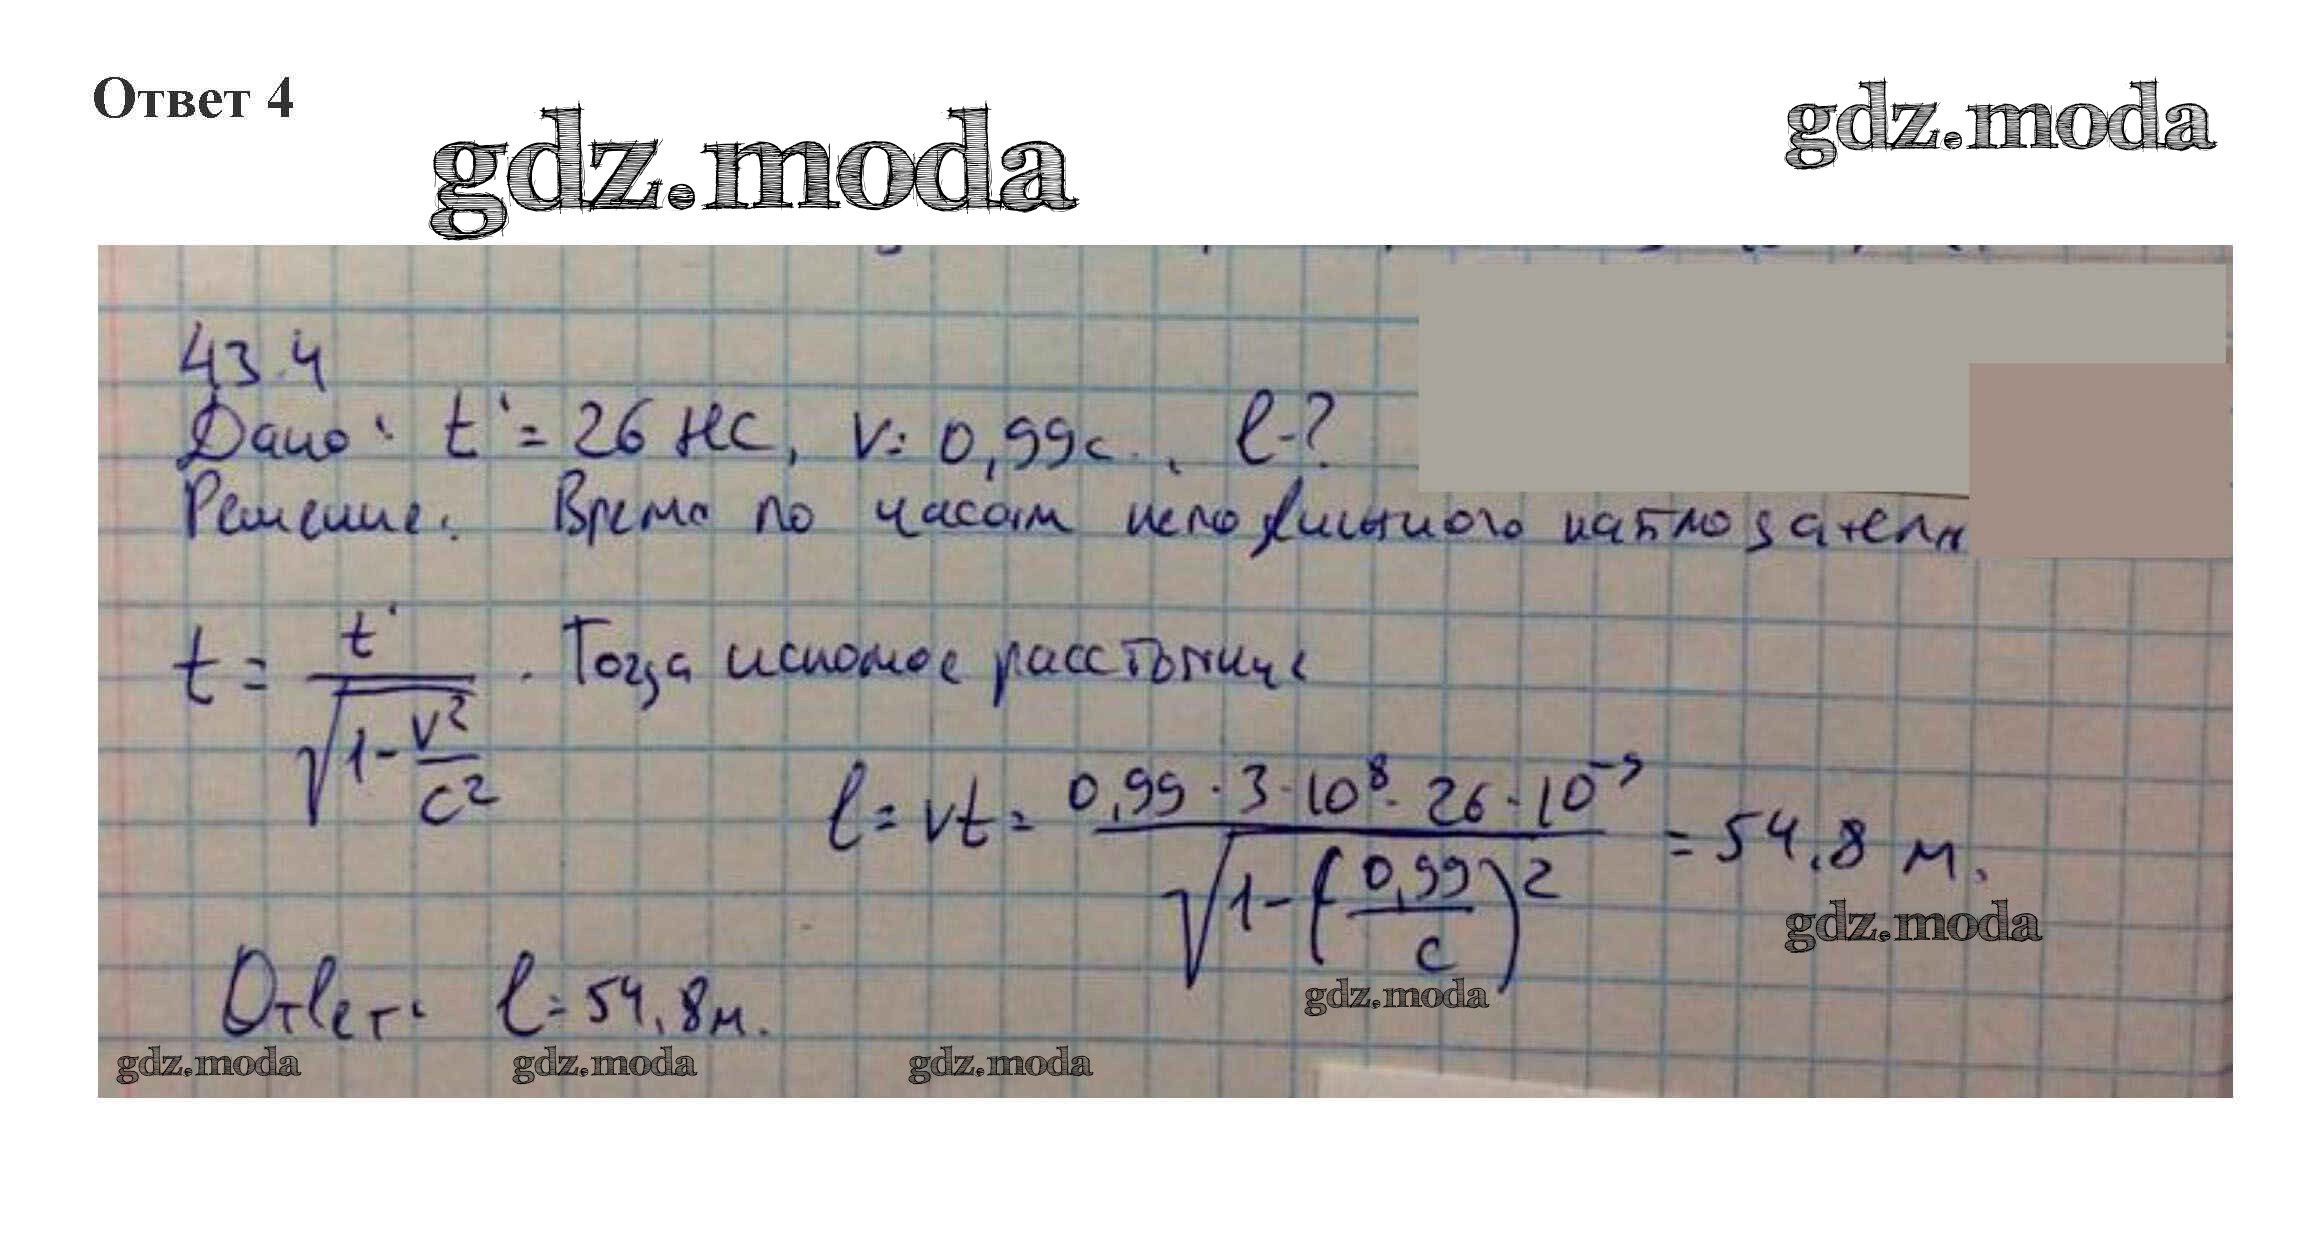 Ответ 4
gdz.moda
gdz.moda
43.4
Дано: t' = 26 нс, v = 0,99c, l-?
Решение. Время по часам неподвижного наблюдателя
t = t' / √(1 - v²/c²) . Тогда искомое расстояние
l = vt = 0,99 · 3 · 10⁸ · 26 · 10⁻⁹ / √(1 - (0,99/c)²) = 54,8 м.
gdz.moda
gdz.moda
Ответ: l = 54,8 м.
gdz.moda
gdz.moda
gdz.moda